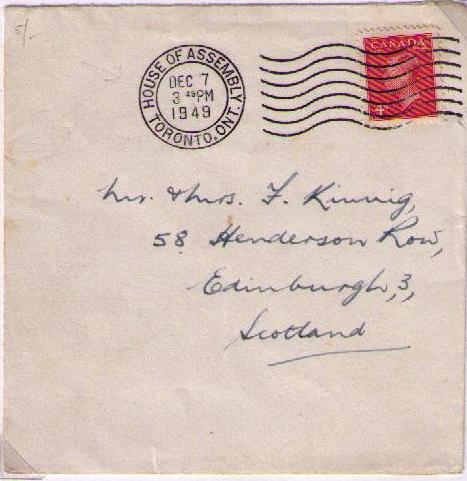 5/-
HOUSE OF ASSEMBLY
DEC 7
3 45 PM
1949
TORONTO, ONT.
CANADA
4
Mr. & Mrs. F. Kinnig,
58 Henderson Row,
Edinburgh, 3,
Scotland